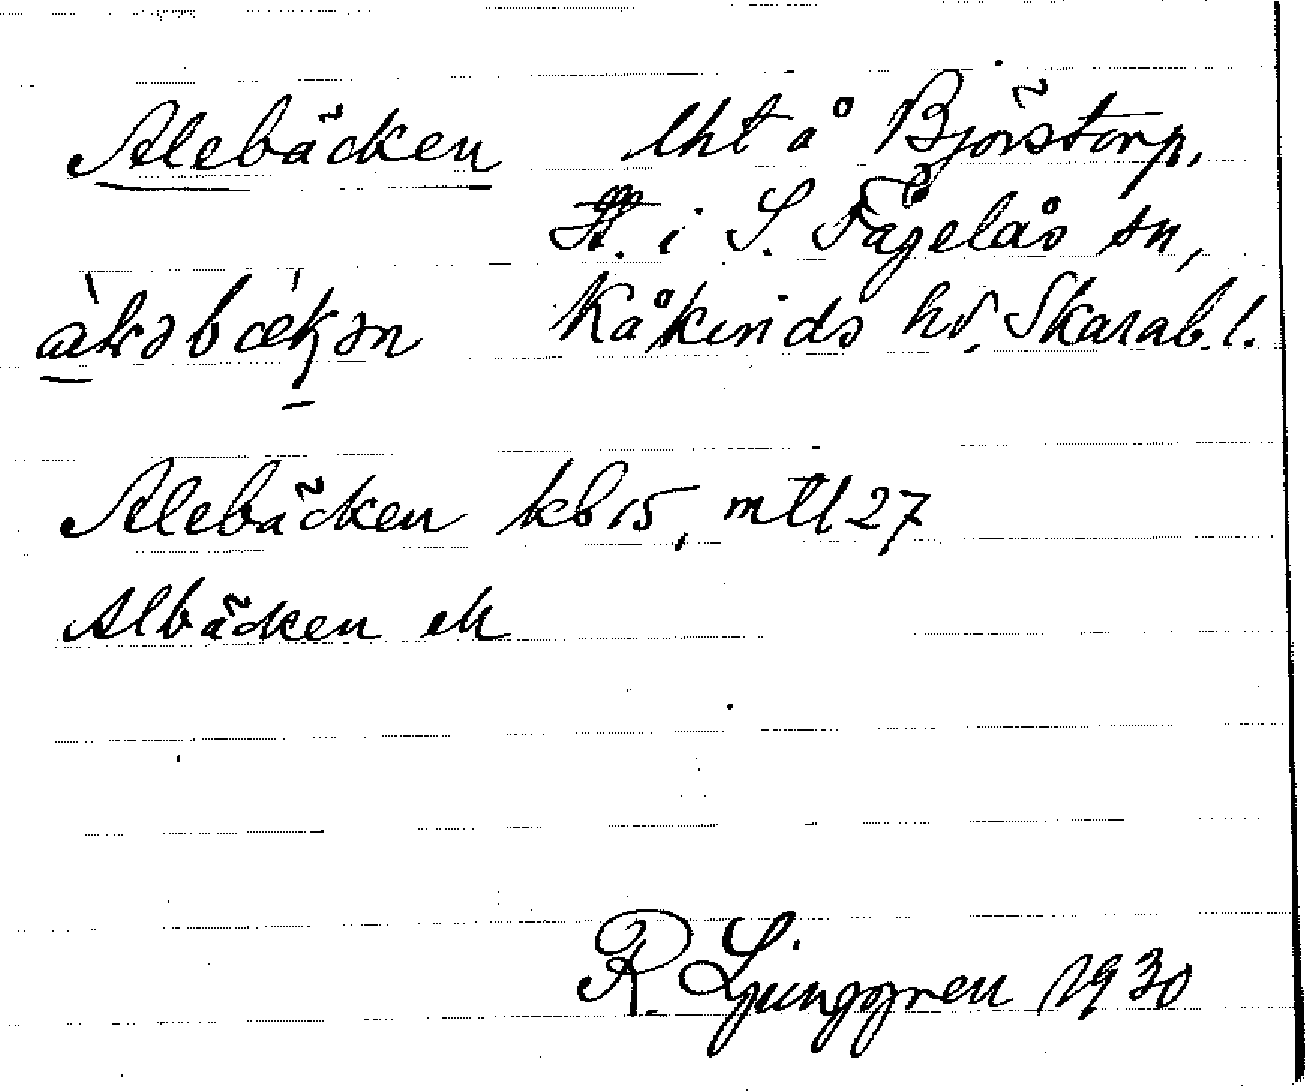 Alebäcken lht å Björstorp,
St. i S. Fågelås sn,
Kåkinds hd. Skarab. l.
Alebäcken kb 15, mtl 27
Albäcken ek
R. Ljunggren 1930